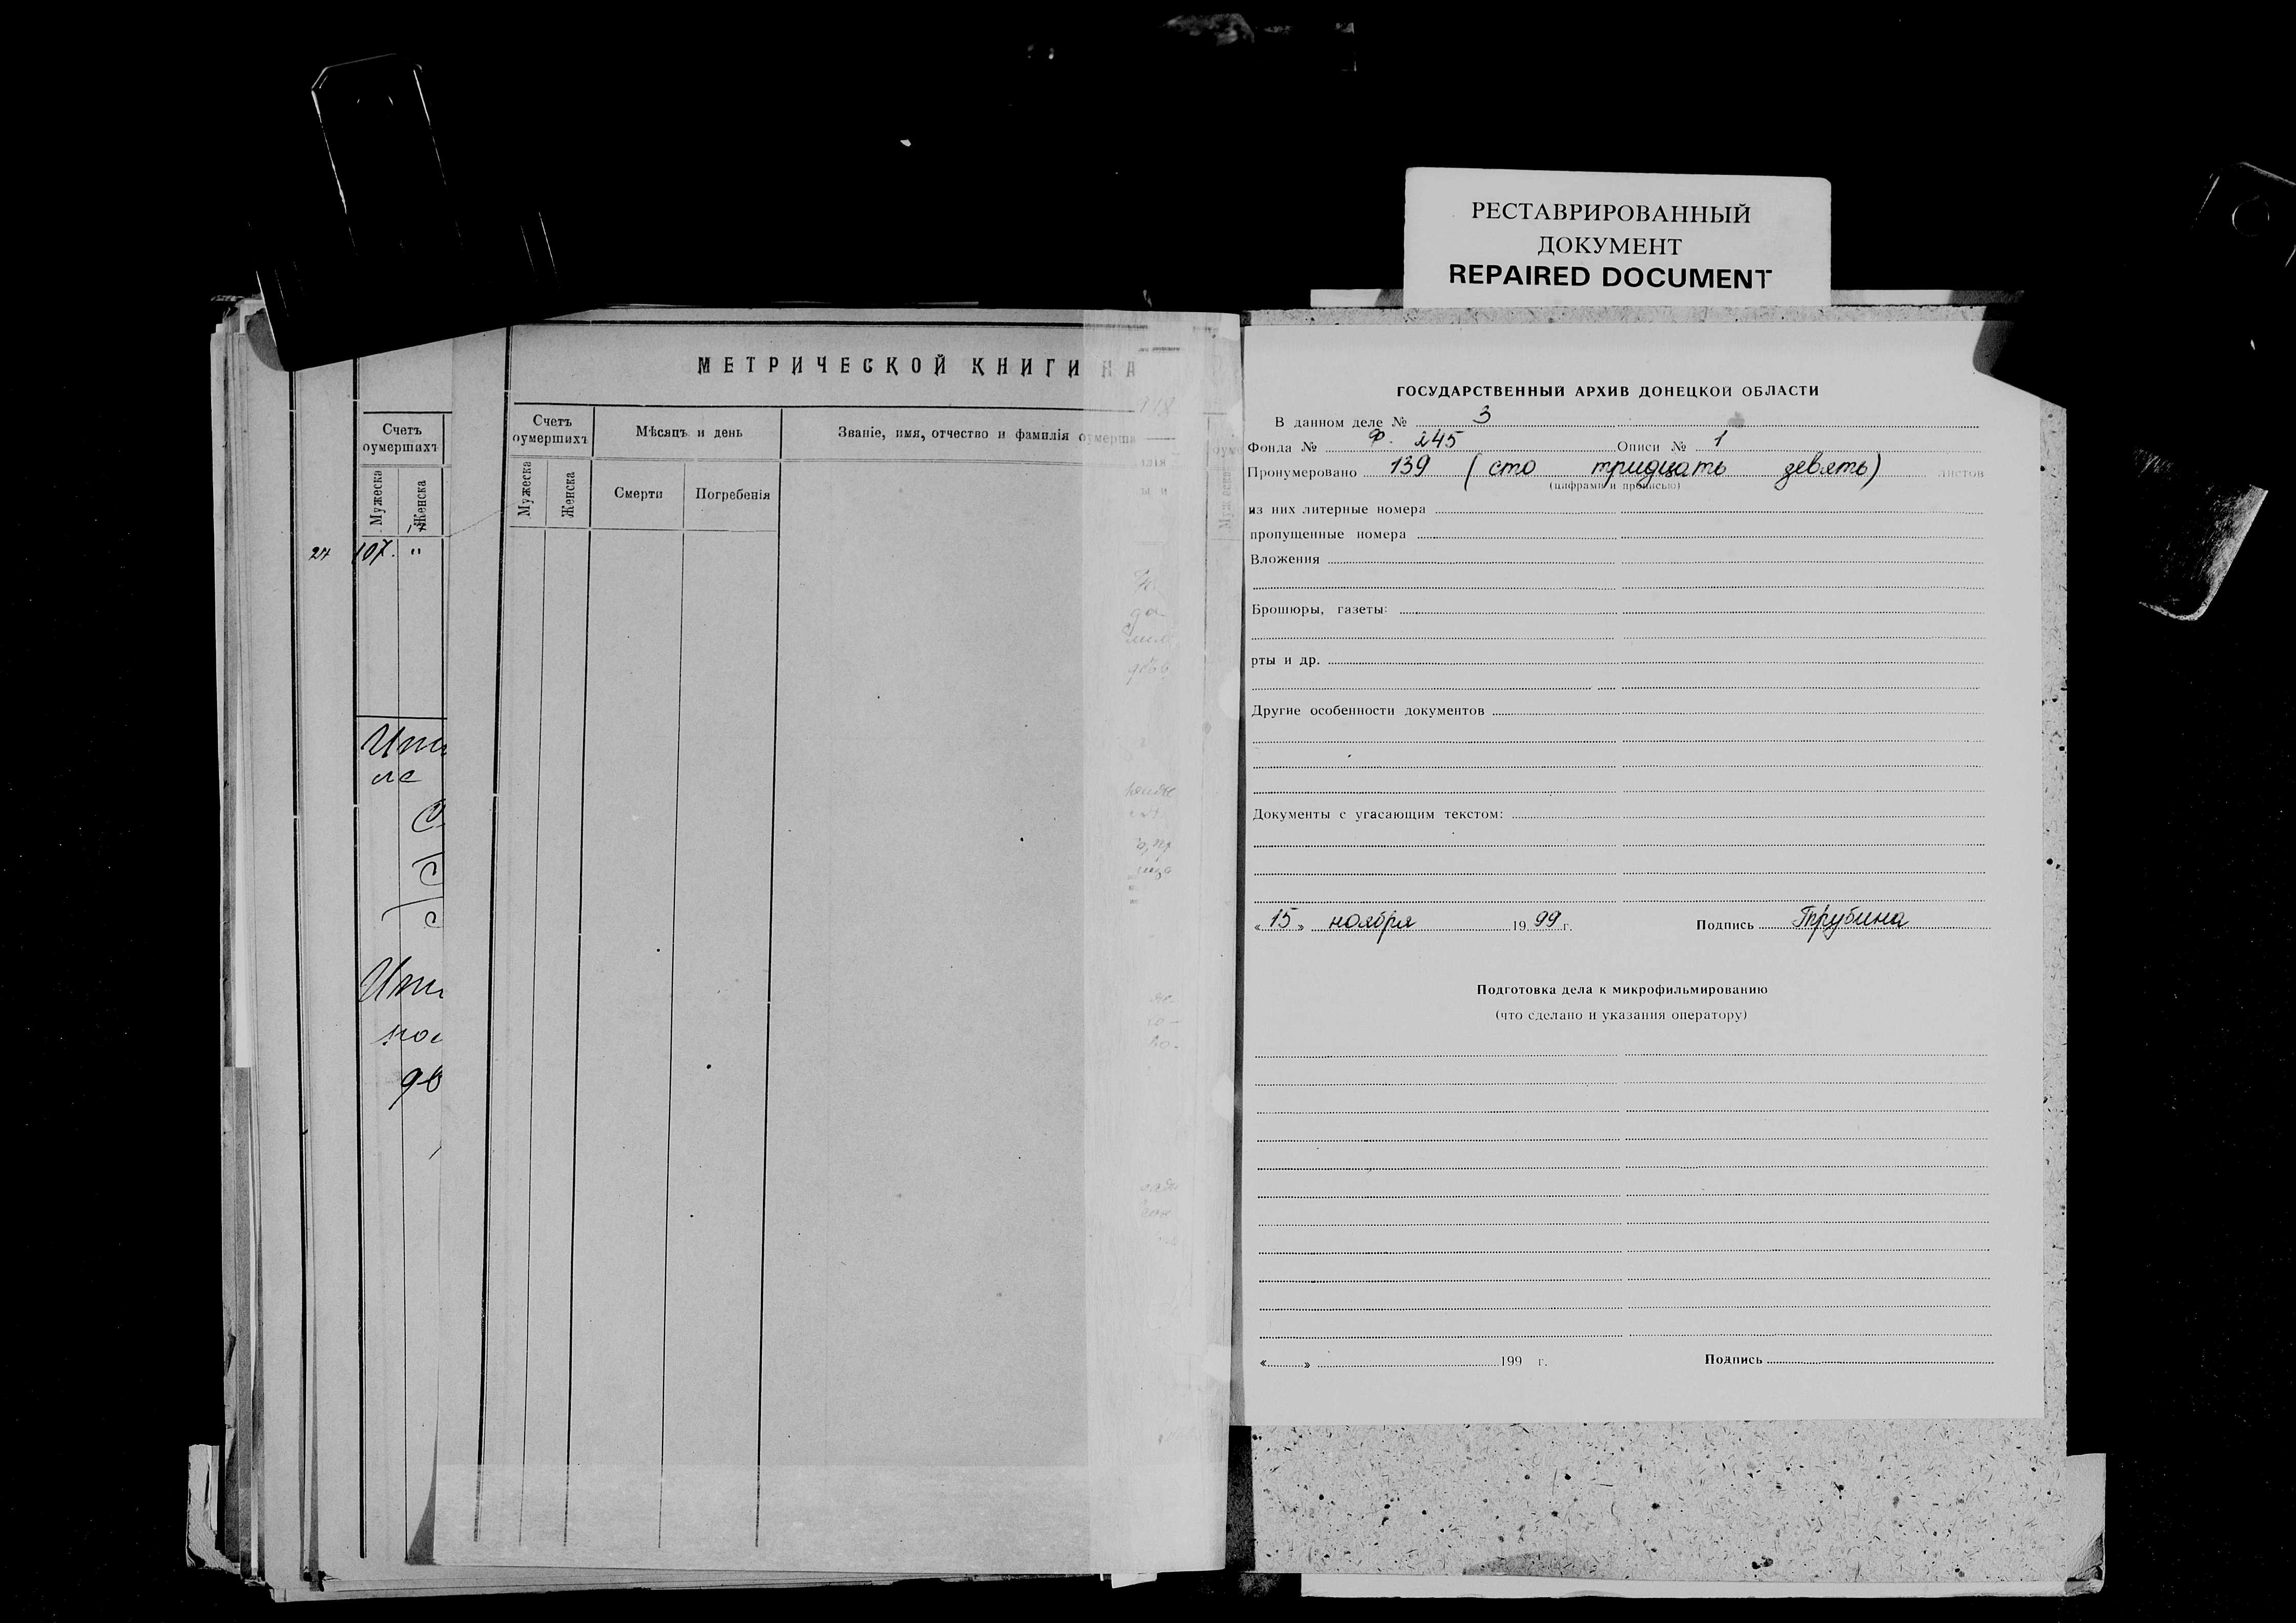 РЕСТАВРИРОВАННЫЙ
ДОКУМЕНТ
REPAIRED DOCUMENT
МЕТРИЧЕСКОЙ КНИГИ НА
Счетъ
оумершихъ
Мужеска
Женска
24 107. "
Счетъ
оумершихъ
Мѣсяцъ и день
Званіе, имя, отчество и фамилія оумерша
Мужеска
Женска
Смерти
Погребенія
ГОСУДАРСТВЕННЫЙ АРХИВ ДОНЕЦКОЙ ОБЛАСТИ
В данном деле № 3
Фонда № Ф. 245 Описи № 1
Пронумеровано 139 (сто тридцать девять) листов
(цифрами и прописью)
из них литерные номера
пропущенные номера
Вложения
Брошюры, газеты:
рты и др.
Другие особенности документов
Документы с угасающим текстом:
«15» ноября 1999 г. Подпись Трубина
Подготовка дела к микрофильмированию
(что сделано и указания оператору)
« » 199 г. Подпись